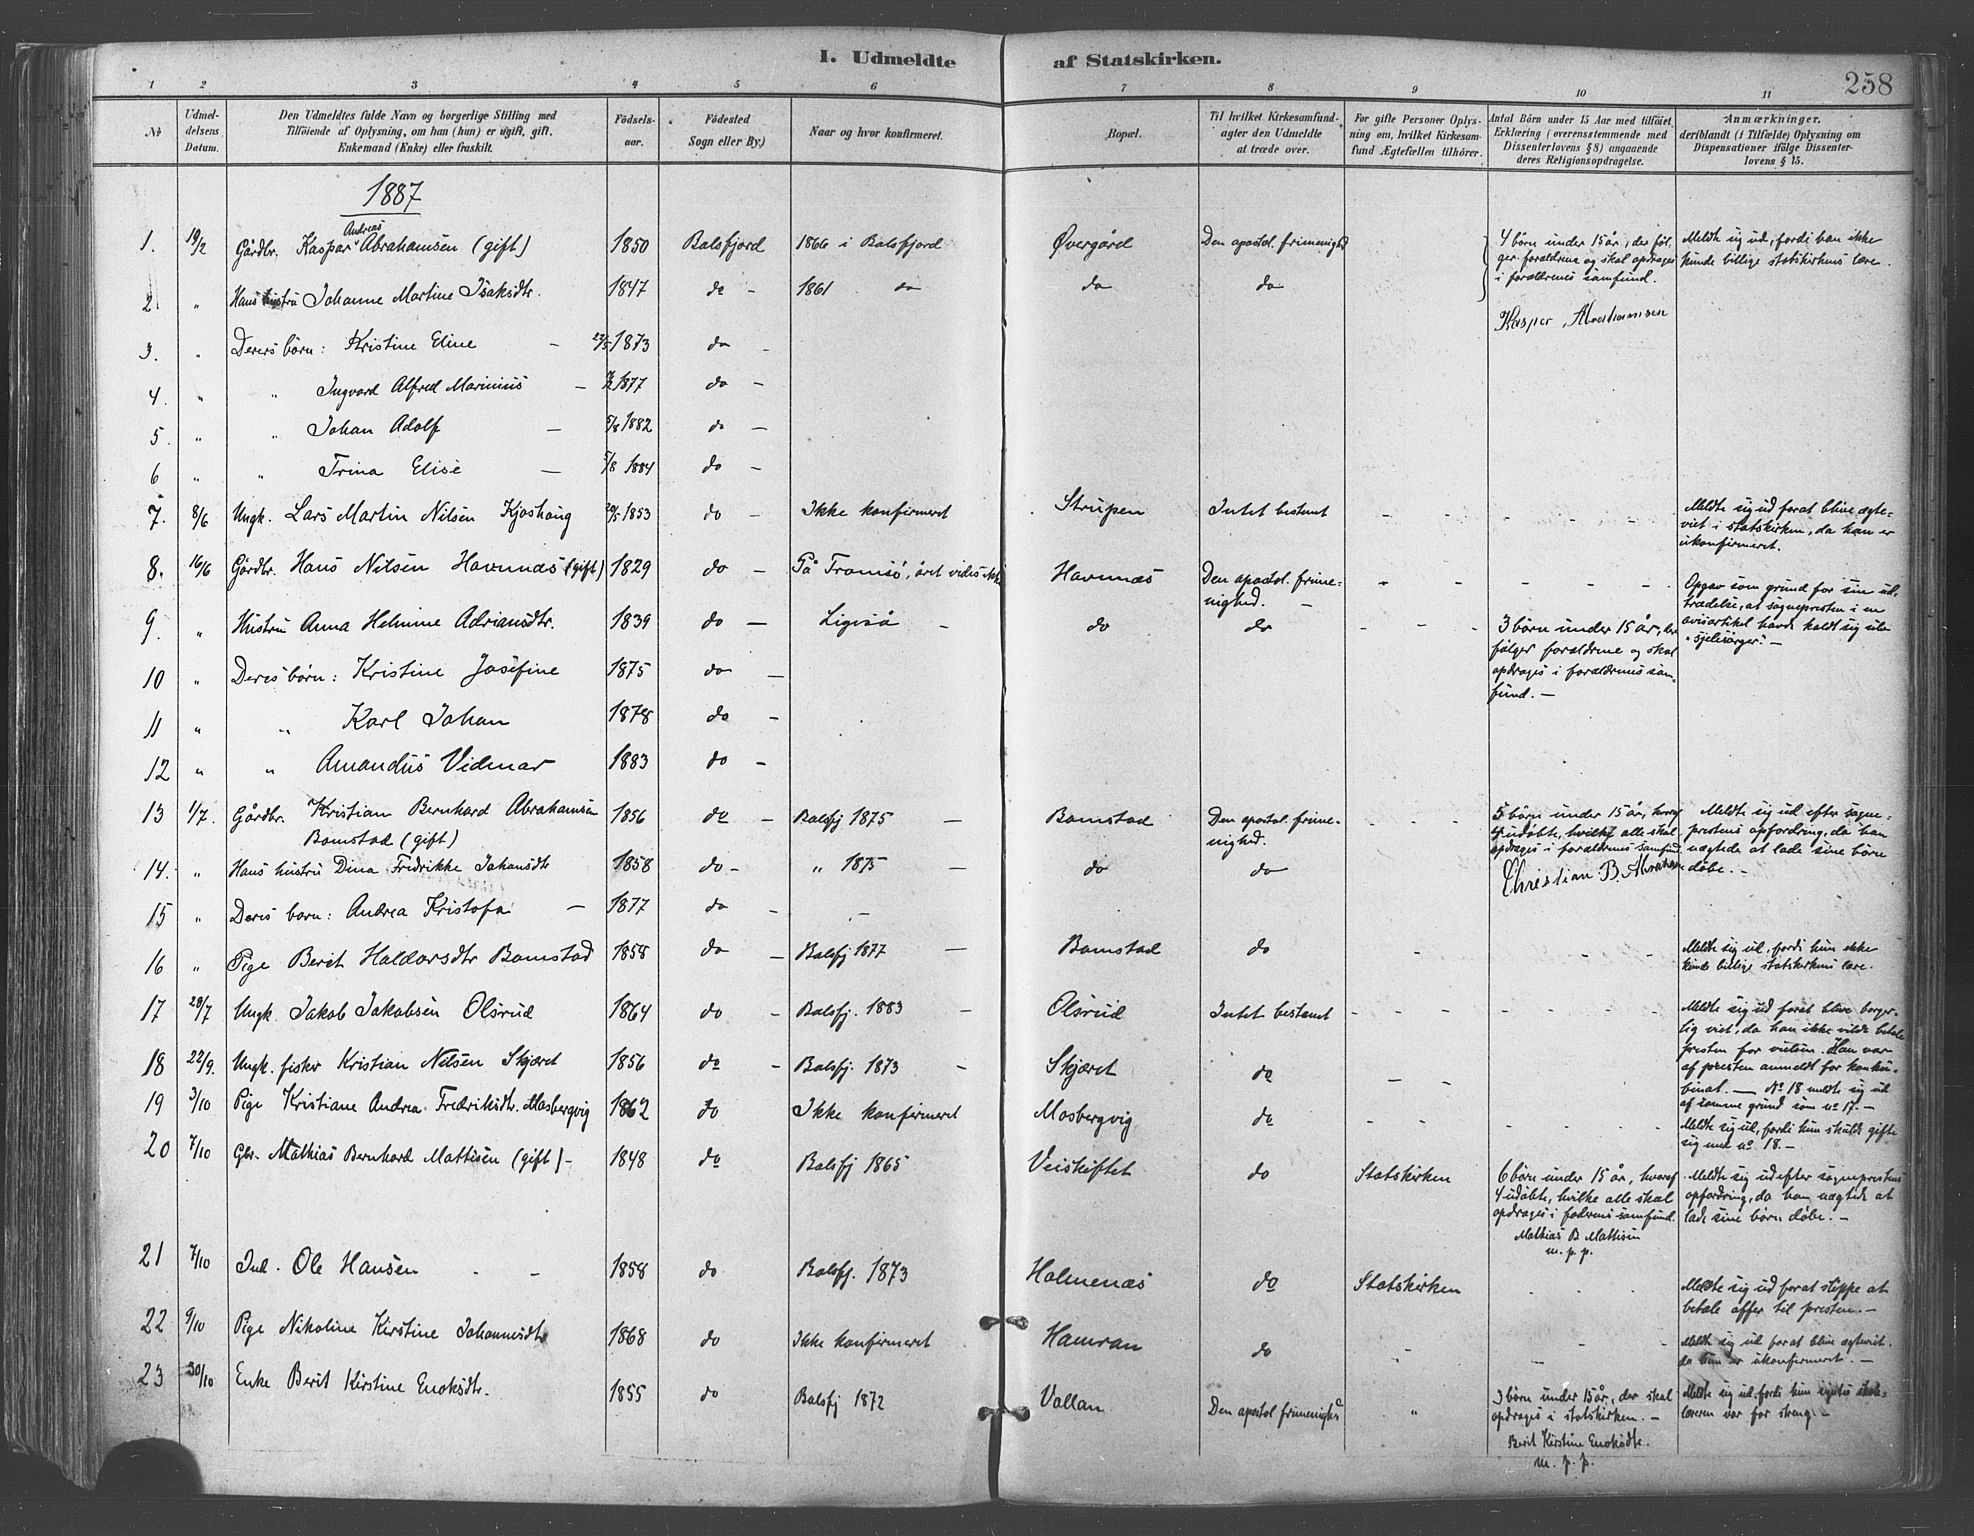 I. Udmeldte af Statskirken.
258
1 2 3 4 5 6 7 8 9 10 11
№ | Udmeldelsens Datum. | Den Udmeldtes fulde Navn og borgerlige Stilling med Tilføiende af Oplysning, om han (hun) er ugift, gift, Enkemand (Enke) eller fraskilt. | Födselsaar. | Födested Sogn eller By.) | Naar og hvor konfirmeret. | Bopæl. | Til hvilket Kirkesamfund agter den Udmeldte at træde over. | For gifte Personer Oplysning om, hvilket Kirkesamfund Ægtefællen tilhörer. | Antal Börn under 15 Aar med tilföiet Erklæring (overensstemmende med Dissenterlovens § 8) angaaende deres Religionsopdragelse. | Anmærkninger, deriblandt (i Tilfælde) Oplysning om Dispensationer ifölge Dissenterlovens § 15.
1887
1. 19/2 Gårdbr. Kaspar Andreas Abrahamsen (gift) 1850 Balsfjord 1866 i Balsfjord Øvergård Den apostol. frimenighed 4 börn under 15 år, der föl-
ger forældrene og skal opdrages
i forældrenes samfund.
Kasper Abrahamsen
Meldte sig ud, fordi han ikke
kunde billige statskirkens lære.
2 " Hans hustru Johanne Martine Isaksdtr. 1847 do - 1861 do do do
3. " Deres börn: Kristine Eline - 1873 do -
4. " " Ingvard Alfred Marinius - 1877 do -
5. " " Johan Adolf - 5/8 1882 do -
6 " " Trina Elise - 5/8 1884 do -
7. 8/6 Ungk. Lars Martin Nilsen Kjoshaug 1853 do - Ikke konfirmeret Strupen Intet bestemt - - - - - Meldte sig ud forat blive ægte-
viet i statskirken, da han er
ukonfirmeret.
8. 16/6 Gårdbr. Hans Nilsen Havnnæs (gift) 1829 do - På Tromsö, året vides ikke Havnnæs Den apostol. frime-
nighed. - - - - - - Opgav som grund for sin ud-
trædelse, at sognepresten i en
avisartikel havde kaldt sig
"sjelesörger". -
9. " Hustru Anna Helmine Adriansdtr. 1839 do - - do do - - - 3 börn under 15 år, der
følger forældrene og skal
opdrages i forældrenes sam-
fund. -
10 " Deres börn: Kristine Josefine 1875 do -
11 " " Karl Johan 1878 do -
12 " " Amandus Vidmar 1883 do -
13 1/7. Gårdbr. Kristian Bernhard Abrahamsen
Bomstad (gift) 1856 do - Balsfj 1875 - Bomstad Den apostol. frime-
nighed. - - - 5 börn under 15 år, hvoraf
4 udöbte, hvilke alle skal
opdrages i forældrenes samfund.
Christian B. Abrahamsen
Meldte sig ud efter sogne-
prestens opfordring, da han
nægtede at lade sine börn
döbe. -
14. " Hans hustru Dina Fredrikke Johansdtr 1858 do - " 1875 - do do
15 " Deres barn: Andrea Kristofa - 1877 do - -
16 " Pige Berit Haldorsdtr Bomstad 1858 do - Balsfj 1877 - Bomstad do - - - Meldte sig ud, fordi hun ikke
kunde billige statskirkens lære.
17 28/7 Ungk. Jakob Jakobsen Olsrud 1864 do - Balsfj. 1883 - Olsrud Intet bestemt - - - - - - - Meldte sig ud forat blive borger-
lig viet, da han ikke vilde betale
presten for vielsen. Han var
af presten anmeldt for konku-
binat. -
18 22/9. Ungk. fisker Kristian Nilsen Skjæret 1856 do - Balsfj. 1873 - Skjæret do - - No 18 meldte sig ud
af samme grund som no 17. -
19 3/10 Pige Kristiane Andrea Fredriksdtr. Mosbergvig 1862 do Ikke konfirmeret Mosbergvig do - - - - - - Meldte sig ud, fordi hun skulde gifte
sig med no 18. -
20 7/10 Gbr. Mathias Bernhard Mattisen (gift) - 1848 do Balsfj 1865 Veiskiftet do Statskirken 6 börn under 15 år, hvoraf
4 udöbte, hvilke alle skal
opdrages i faderens samfund.
Mathias B Mattisen
m. p. p.
Meldte sig ud efter sogneprestens
opfordring, da han nægtede at
lade sine börn döbe. -
21 7/10 Ind. Ole Hansen - - 1858 do Balsfj. 1873 Holmenæs do Statskirken - - - Meldte sig ud forat slippe at
betale offer til presten. -
22 9/10 Pige Nikoline Kirstine Johannesdtr 1868 do Ikke konfirmeret Hamran do - - - Meldte sig ud forat blive ægteviet.
da hun er ukonfirmeret. -
23 30/10 Enke Berit Kirstine Enoksdtr. 1855 do Balsfj 1872 Vollan Den apostol frimenighed " 3 börn under 15 år, der skal
opdrages i statskirken. -
Berit Kirstine Enoksdtr.
m. p. p.
Meldte sig ud, fordi hun syntes skole-
læreren var for streng -